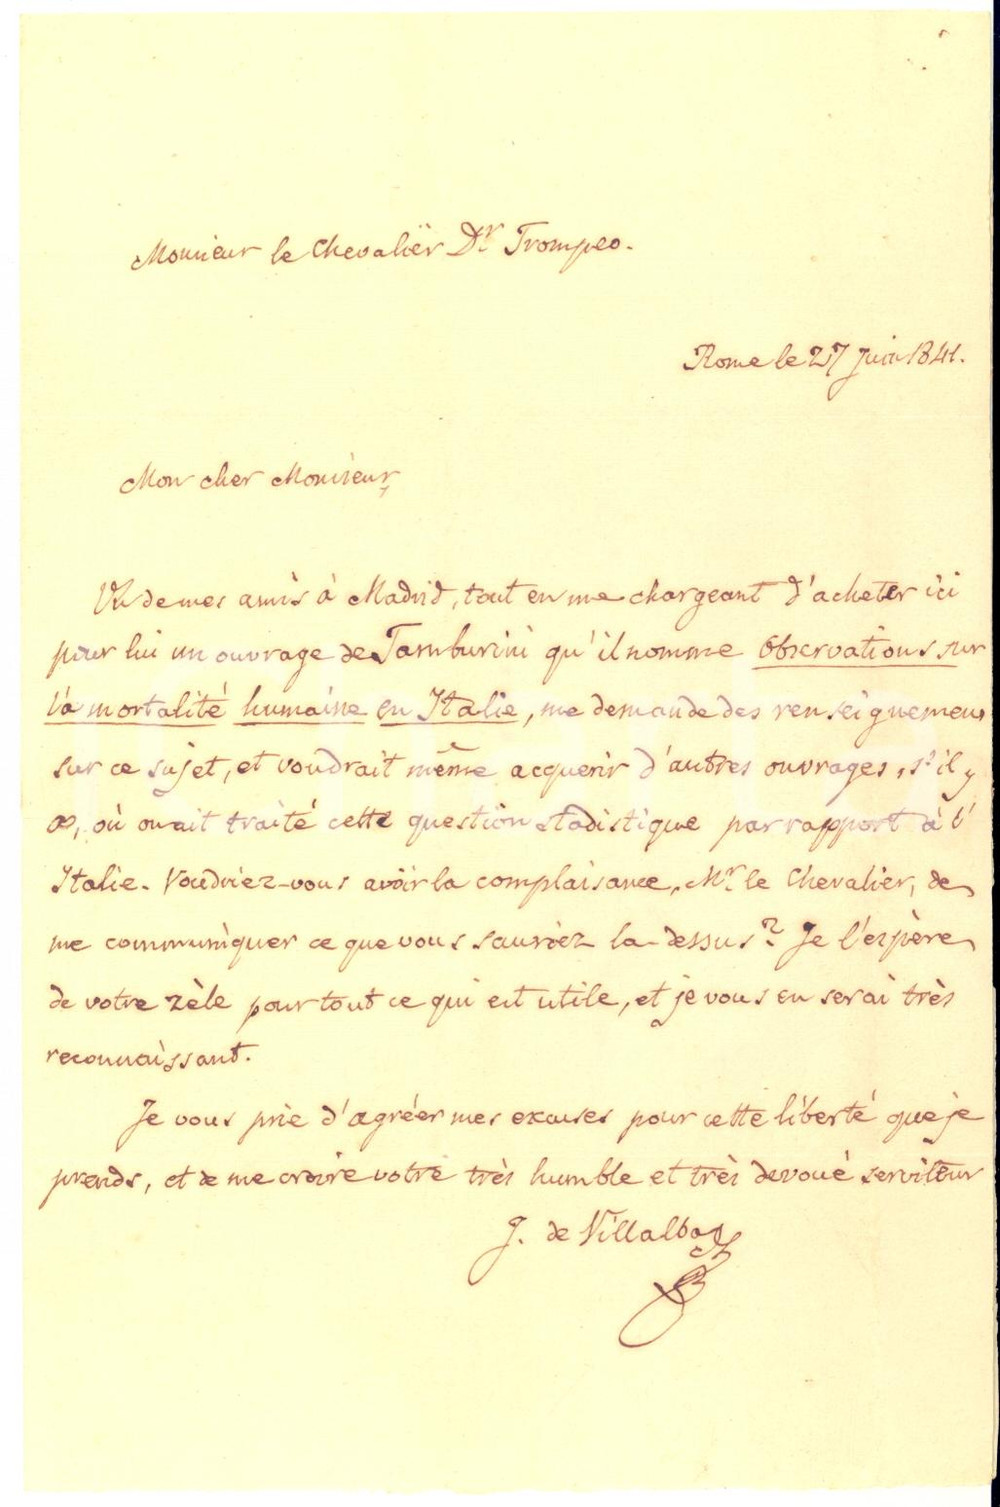 Monsieur le Chevalier Dr Trompeo.
Rome le 27 Juin 1841.
Mon cher Monsieur,
Un de mes amis à Madrid, tout en me chargeant d'acheter ici
pour lui un ouvrage de Tamburini qu'il nomme Observations sur
la mortalité humaine en Italie, me demande des renseignemens
sur ce sujet, et voudrait même acquerir d'autres ouvrages, s'il y
a, où on ait traité cette question stadistique par rapport à l'
Italie. Voudriez-vous avoir la complaisance, Mr le Chevalier, de
me communiquer ce que vous sauriez la-dessus? Je l'espère
de votre zèle pour tout ce qui est utile, et je vous en serai très
reconnaissant.
Je vous prie d'agréer mes excuses pour cette liberté que je
prends, et de me croire votre très humble et très devoué serviteur
J. de Villalba